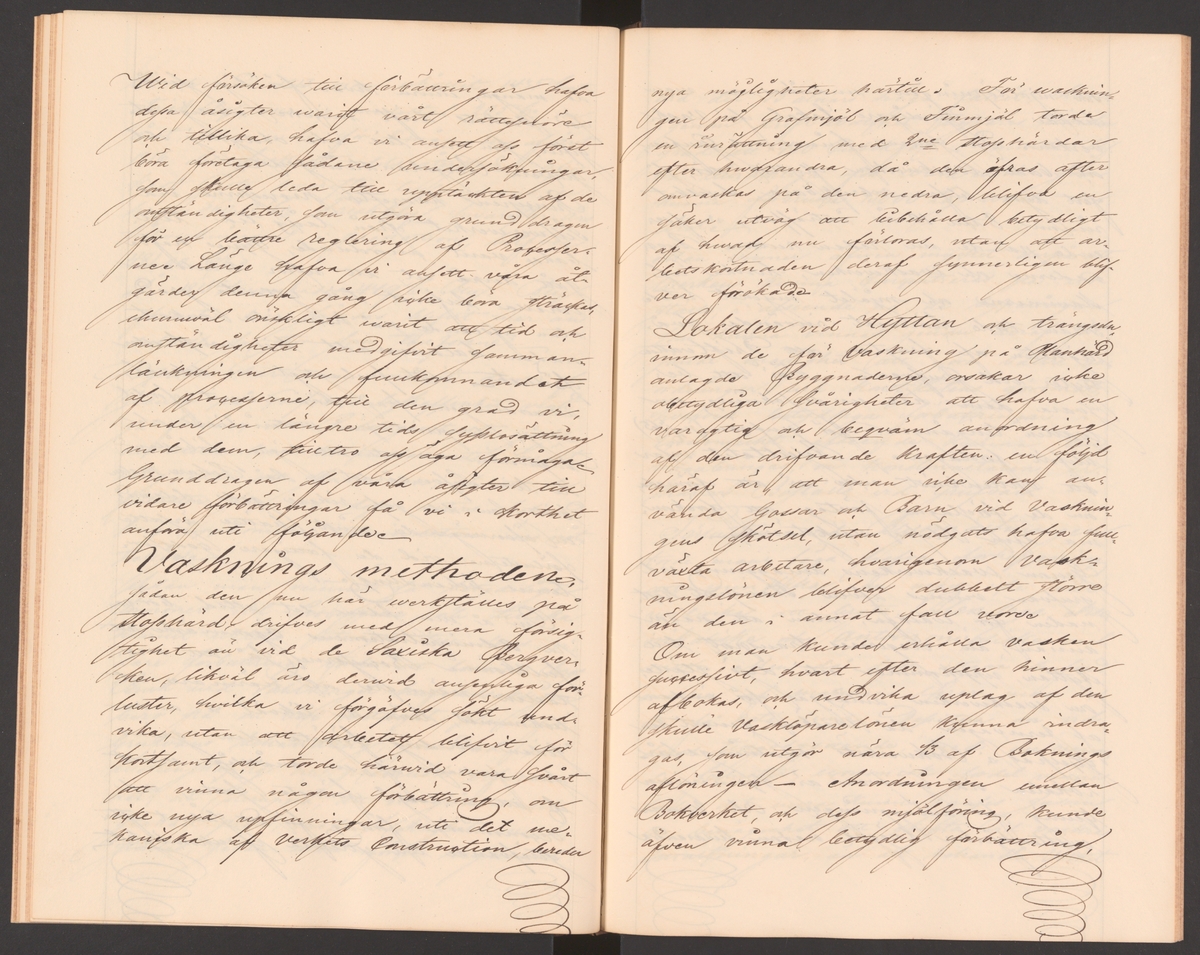 Wid försöken till förbättringar hafva
dessa åsigter warit vårt rättesnöre
och tillika, hafva vi ansett oss först
böra företaga sådane undersökningar,
som skulle leda till upptäckten af de
omständigheter, som utgöra grunddragen
för en bättre reglering af Processer-
ne. Länge hafva vi ansett våra åt-
gärder denna gång icke böra sträckas,
ehuruväl önskligt warit att tid och
omständigheter medgifvit samman-
länkningen och
af processerne, till den grad vi,
under en längre tids sysslosättning
med dem, tilltro oss äga förmåga
Grunddragen af våra åsigter till
vidare förbättringar få vi i korthet
anföra uti följande
Vasknings methoden,
sådan den nu här werkställes på
Stosshärd, drifves med mera försig-
tighet än vid de Saxiska Bergver-
ken, likväl äro dervid ansenliga för-
luster, hvilka vi förgäfves sökt und-
vika, utan att arbetet blifvit för
kostsamt, och torde härwid vara svårt
att vinna någon förbättring, om
icke nya upfinningar, uti det me-
kaniska af verkets Construction, bereder
nya möjligheter härtill. För wasknin-
gen på Grafmjöl och Tinnmjöl torde
en inrättning med 2ne Stosshärdar
efter hvarandra, då den öfras after
omvaskas på den nedra, blifva en
säker utväg att bibehålla betydligt
af hwad nu förloras, utan att ar-
betskostnaden deraf synnerligen blif-
ver förökad
Lokalen vid Hyttan och trängseln
innom de för Vaskning på Planhärd
anlagde Byggnaderne, orsakar icke
obetydliga svårigheter att hafva en
varaktig och beqväm anordning
af den drifvande kraften: en följd
häraf är, att man icke kan an-
vända Gossar och Barn vid Vasknin-
gens skötsel, utan nödgats hafva full-
växta arbetare, hvarigenom Vask-
ningslönen blifver dubbelt större
än den i annat fall vore
Om man kunde erhålla vasken
successivt, hvart efter den hinner
afbokas, och undvika uplag af den
skulle Vasklöparelönen kunna indra-
gas, som utgör nära 1/3 af Boknings
aflöningen — Anordningen emellan
Bokverket, och dess mjölföring, kunde
äfven vinna betydlig förbättring,